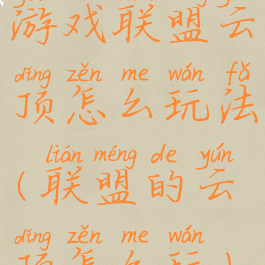 游戏联盟云
dǐng zěn me wán fǎ
顶怎么玩法
lián méng de yún
(联盟的云
dǐng zěn me wán
顶怎么玩)